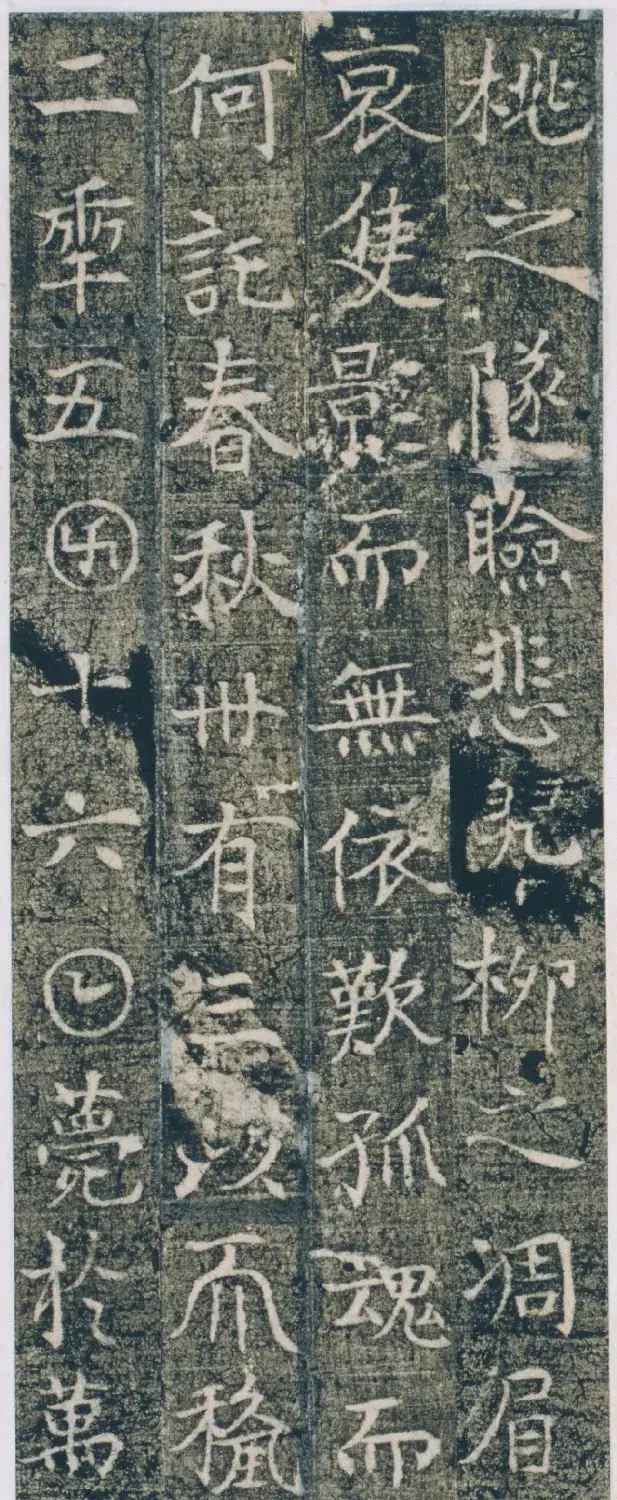 桃之墜臉悲翠柳之凋眉
哀隻影而無依歎孤魂而
何託春秋卌有三以𠀑𥠢
二𠡦五囝十六𡆠薨於萬